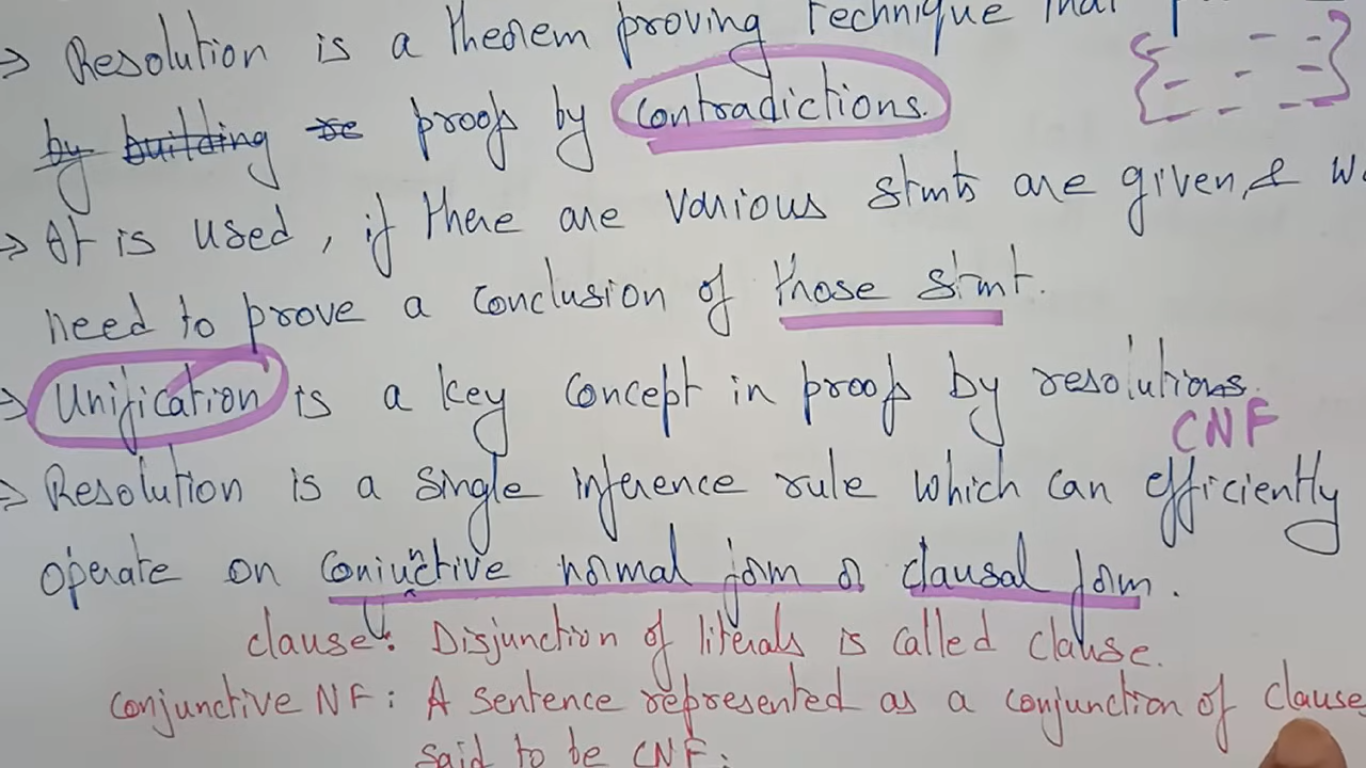 ⇒ Resolution is a theorem proving technique that
by building re proof by contradictions.
⇒ It is used, if there are various stmts are given, & we
need to prove a conclusion of those stmt.
⇒ Unification is a key concept in proof by resolutions.
CNF
⇒ Resolution is a single inference rule which can efficiently
operate on conjunctive normal form or clausal form.
clause: Disjunction of literals is called clause.
conjunctive NF: A sentence represented as a conjunction of clause
said to be CNF: